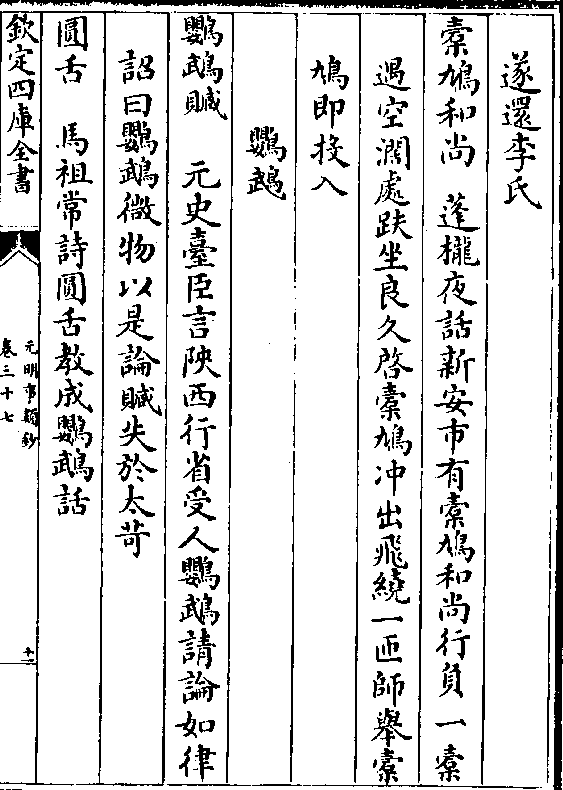 遂還李氏
橐鳩和尚　蓬櫳夜話新安市有橐鳩和尚行負一橐
遇空濶處趺坐良久啓橐鳩冲出飛繞一匝師舉橐
鳩即投入
鸚鵡
鸚鵡贓　元史臺臣言陜西行省受人鸚鵡請論如律
詔曰鸚鵡微物以是論贓失於太苛
圓舌　馬祖常詩圓舌教成鸚鵡話
欽定四庫全書
元明事類鈔
卷三十七
十二